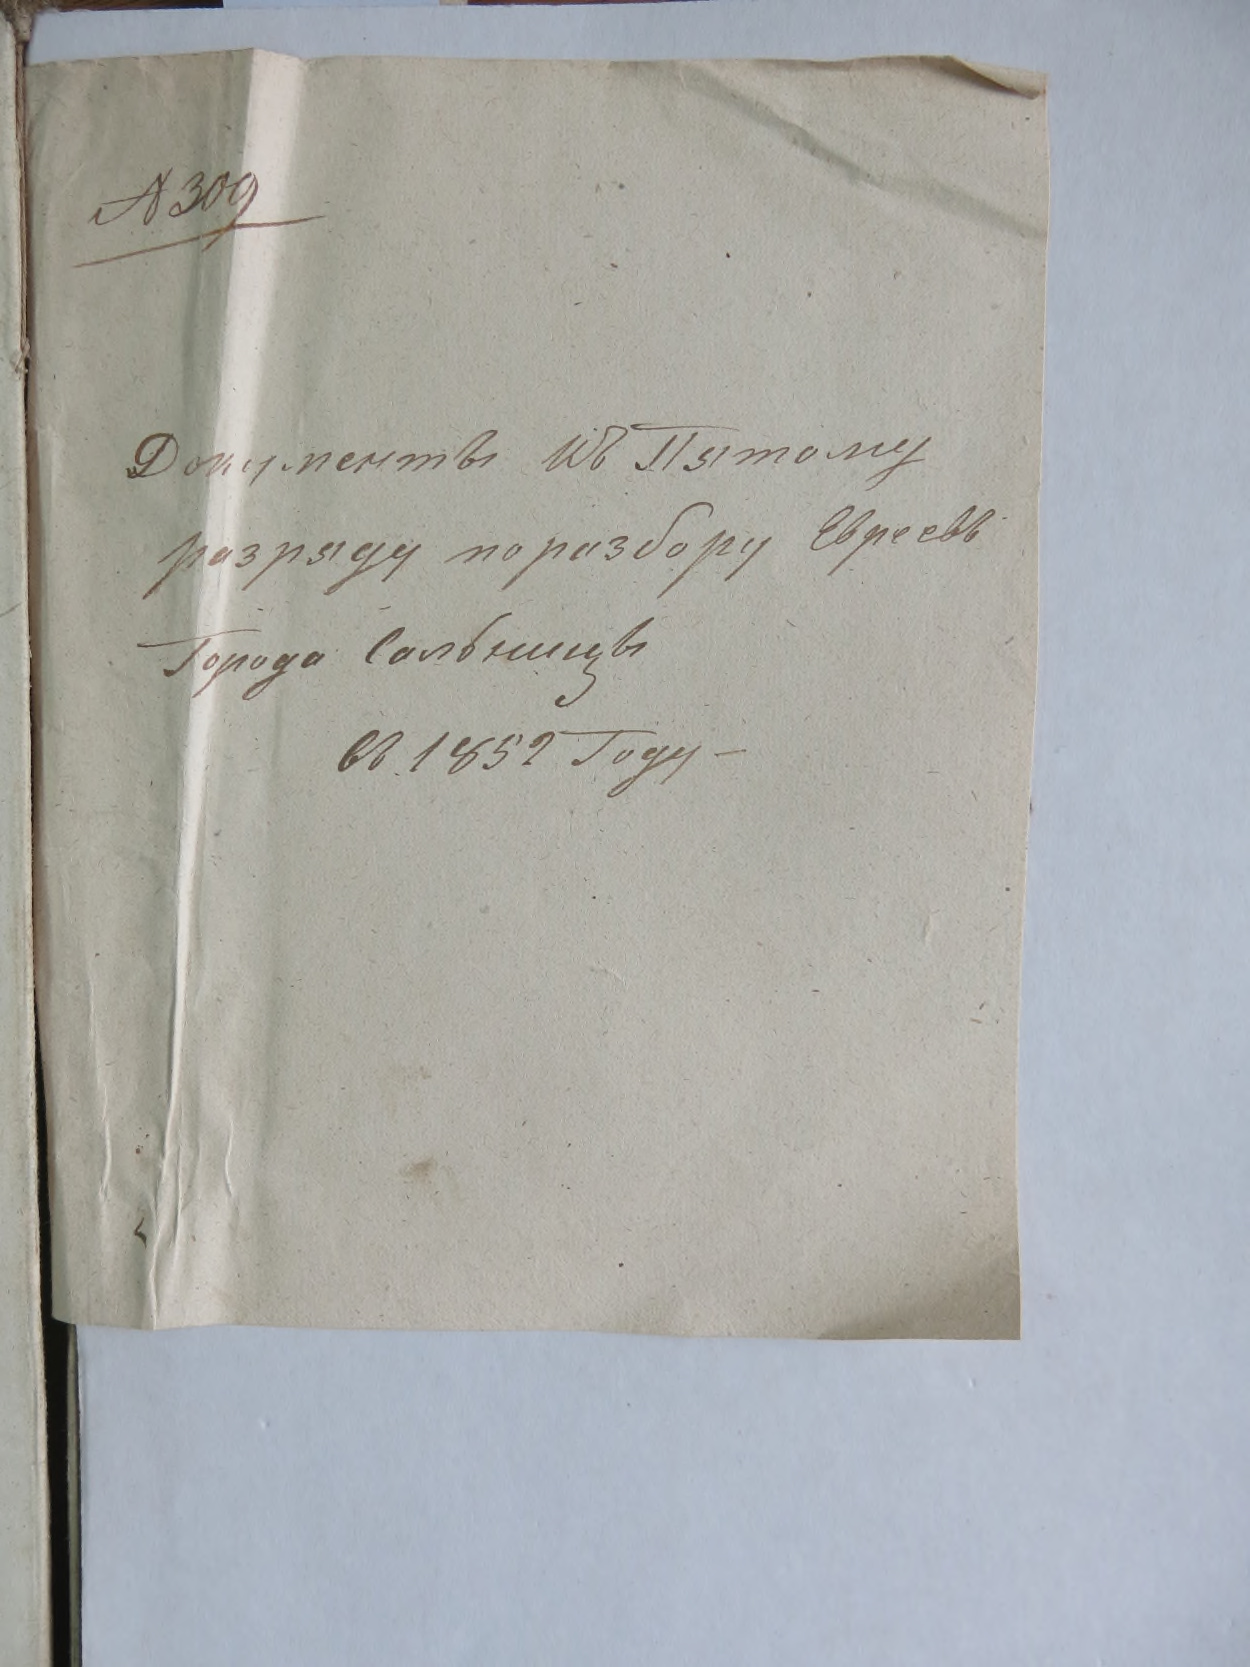 № 309
Документы къ Пятому
разряду по разбору Евреевъ
Города Сальницы
въ 1852 Году –